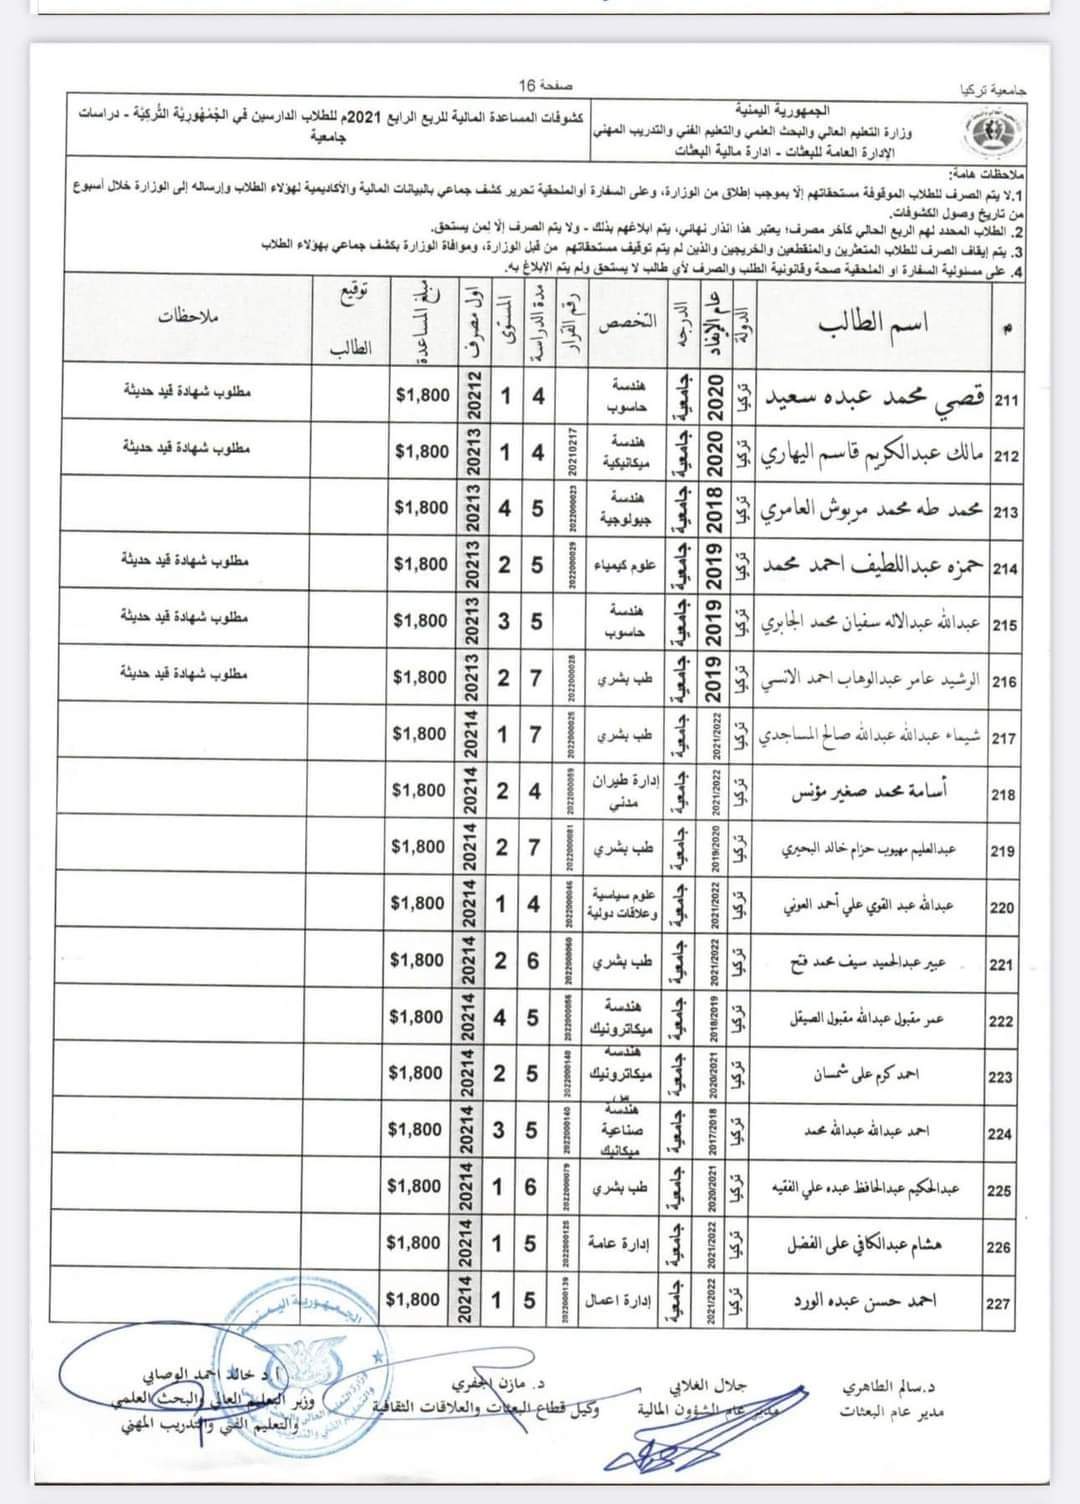 جامعية تركيا
صفحة 16
الجمهورية اليمنية
وزارة التعليم العالي والبحث العلمي والتعليم الفني والتدريب المهني
الإدارة العامة للبعثات - ادارة مالية البعثات
كشوفات المساعدة المالية للربع الرابع 2021م للطلاب الدارسين في الجُمْهُوريَّة التُّركيَّة - دراسات
جامعية
ملاحظات هامة:
1.لا يتم الصرف للطلاب الموقوفة مستحقاتهم إلّا بموجب إطلاق من الوزارة، وعلى السفارة أوالملحقية تحرير كشف جماعي بالبيانات المالية والأكاديمية لهؤلاء الطلاب وإرساله إلى الوزارة خلال أسبوع
من تاريخ وصول الكشوفات.
2. الطلاب المحدد لهم الربع الحالي كآخر مصرف؛ يعتبر هذا انذار نهائي، يتم ابلاغهم بذلك - ولا يتم الصرف إلّا لمن يستحق.
3. يتم إيقاف الصرف للطلاب المتعثرين والمنقطعين والخريجين والذين لم يتم توقيف مستحقاتهم من قبل الوزارة، وموافاة الوزارة بكشف جماعي بهؤلاء الطلاب
4. على مسئولية السفارة او الملحقية صحة وقانونية الطلب والصرف لأي طالب لا يستحق ولم يتم الإبلاغ به.
م اسم الطالب الدولة عام الإيفاد الدرجه التخصص رقم القرار مدة الدراسة المستوى اول مصرف مبلغ المساعدة توقيع الطالب ملاحظات
211 قصي محمد عبده سعيد تركيا 2020 جامعية هندسة حاسوب 4 1 20212 $1,800 مطلوب شهادة قيد حديثة
212 مالك عبدالكريم قاسم اليهاري تركيا 2020 جامعية هندسة ميكانيكية 20210217 4 1 20213 $1,800 مطلوب شهادة قيد حديثة
213 محمد طه محمد مربوش العامري تركيا 2018 جامعية هندسة جيولوجية 2022000023 5 4 20213 $1,800
214 حمزه عبداللطيف احمد محمد تركيا 2019 جامعية علوم كيمياء 2022000029 5 2 20213 $1,800 مطلوب شهادة قيد حديثة
215 عبدالله عبدالاله سفيان محمد الجابري تركيا 2019 جامعية هندسة حاسوب 5 3 20213 $1,800 مطلوب شهادة قيد حديثة
216 الرشيد عامر عبدالوهاب احمد الانسي تركيا 2019 جامعية طب بشري 2022000028 7 2 20213 $1,800 مطلوب شهادة قيد حديثة
217 شيماء عبدالله عبدالله صالح المساجدي تركيا 2021/2022 جامعية طب بشري 2022000025 7 1 20214 $1,800
218 أسامة محمد صغير مؤنس تركيا 2021/2022 جامعية إدارة طيران مدني 2022000059 4 2 20214 $1,800
219 عبدالعليم مهيوب حزام خالد البحيري تركيا 2019/2020 جامعية طب بشري 2022000081 7 2 20214 $1,800
220 عبدالله عبد القوي علي أحمد العوني تركيا 2021/2022 جامعية علوم سياسية وعلاقات دولية 2022000046 4 1 20214 $1,800
221 عبير عبدالحميد سيف محمد فتح تركيا 2021/2022 جامعية طب بشري 2022000060 6 2 20214 $1,800
222 عمر مقبول عبدالله مقبول الصيقل تركيا 2018/2019 جامعية هندسة ميكاترونيك 2022000086 5 4 20214 $1,800
223 احمد كرم على شمسان تركيا 2020/2021 جامعية هندسة ميكاترونيك 2022000148 5 2 20214 $1,800
224 احمد عبدالله عبدالله محمد تركيا 2017/2018 جامعية هندسة صناعية ميكانيك 2022000140 5 3 20214 $1,800
225 عبدالحكيم عبدالحافظ عبده علي الفقيه تركيا 2020/2021 جامعية طب بشري 2022000079 6 1 20214 $1,800
226 هشام عبدالكافي على الفضل تركيا 2021/2022 جامعية إدارة عامة 2022000125 5 1 20214 $1,800
227 احمد حسن عبده الورد تركيا 2021/2022 جامعية إدارة اعمال 2022000139 5 1 20214 $1,800
د.سالم الطاهري
مدير عام البعثات
جلال الغلابي
مدير عام الشؤون المالية
د. مازن الجفري
وكيل قطاع البعثات والعلاقات الثقافية
أ.د خالد احمد الوصابي
وزير التعليم العالي والبحث العلمي
والتعليم الفني والتدريب المهني
الجمهورية اليمنية